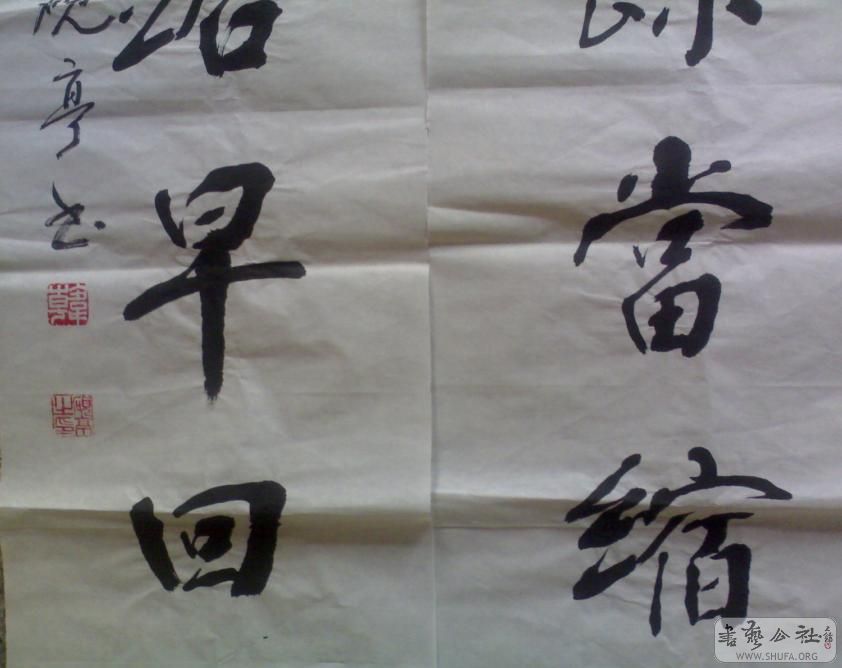 當縮
早回
亭书
書藝公社
WWW.SHUFA.ORG